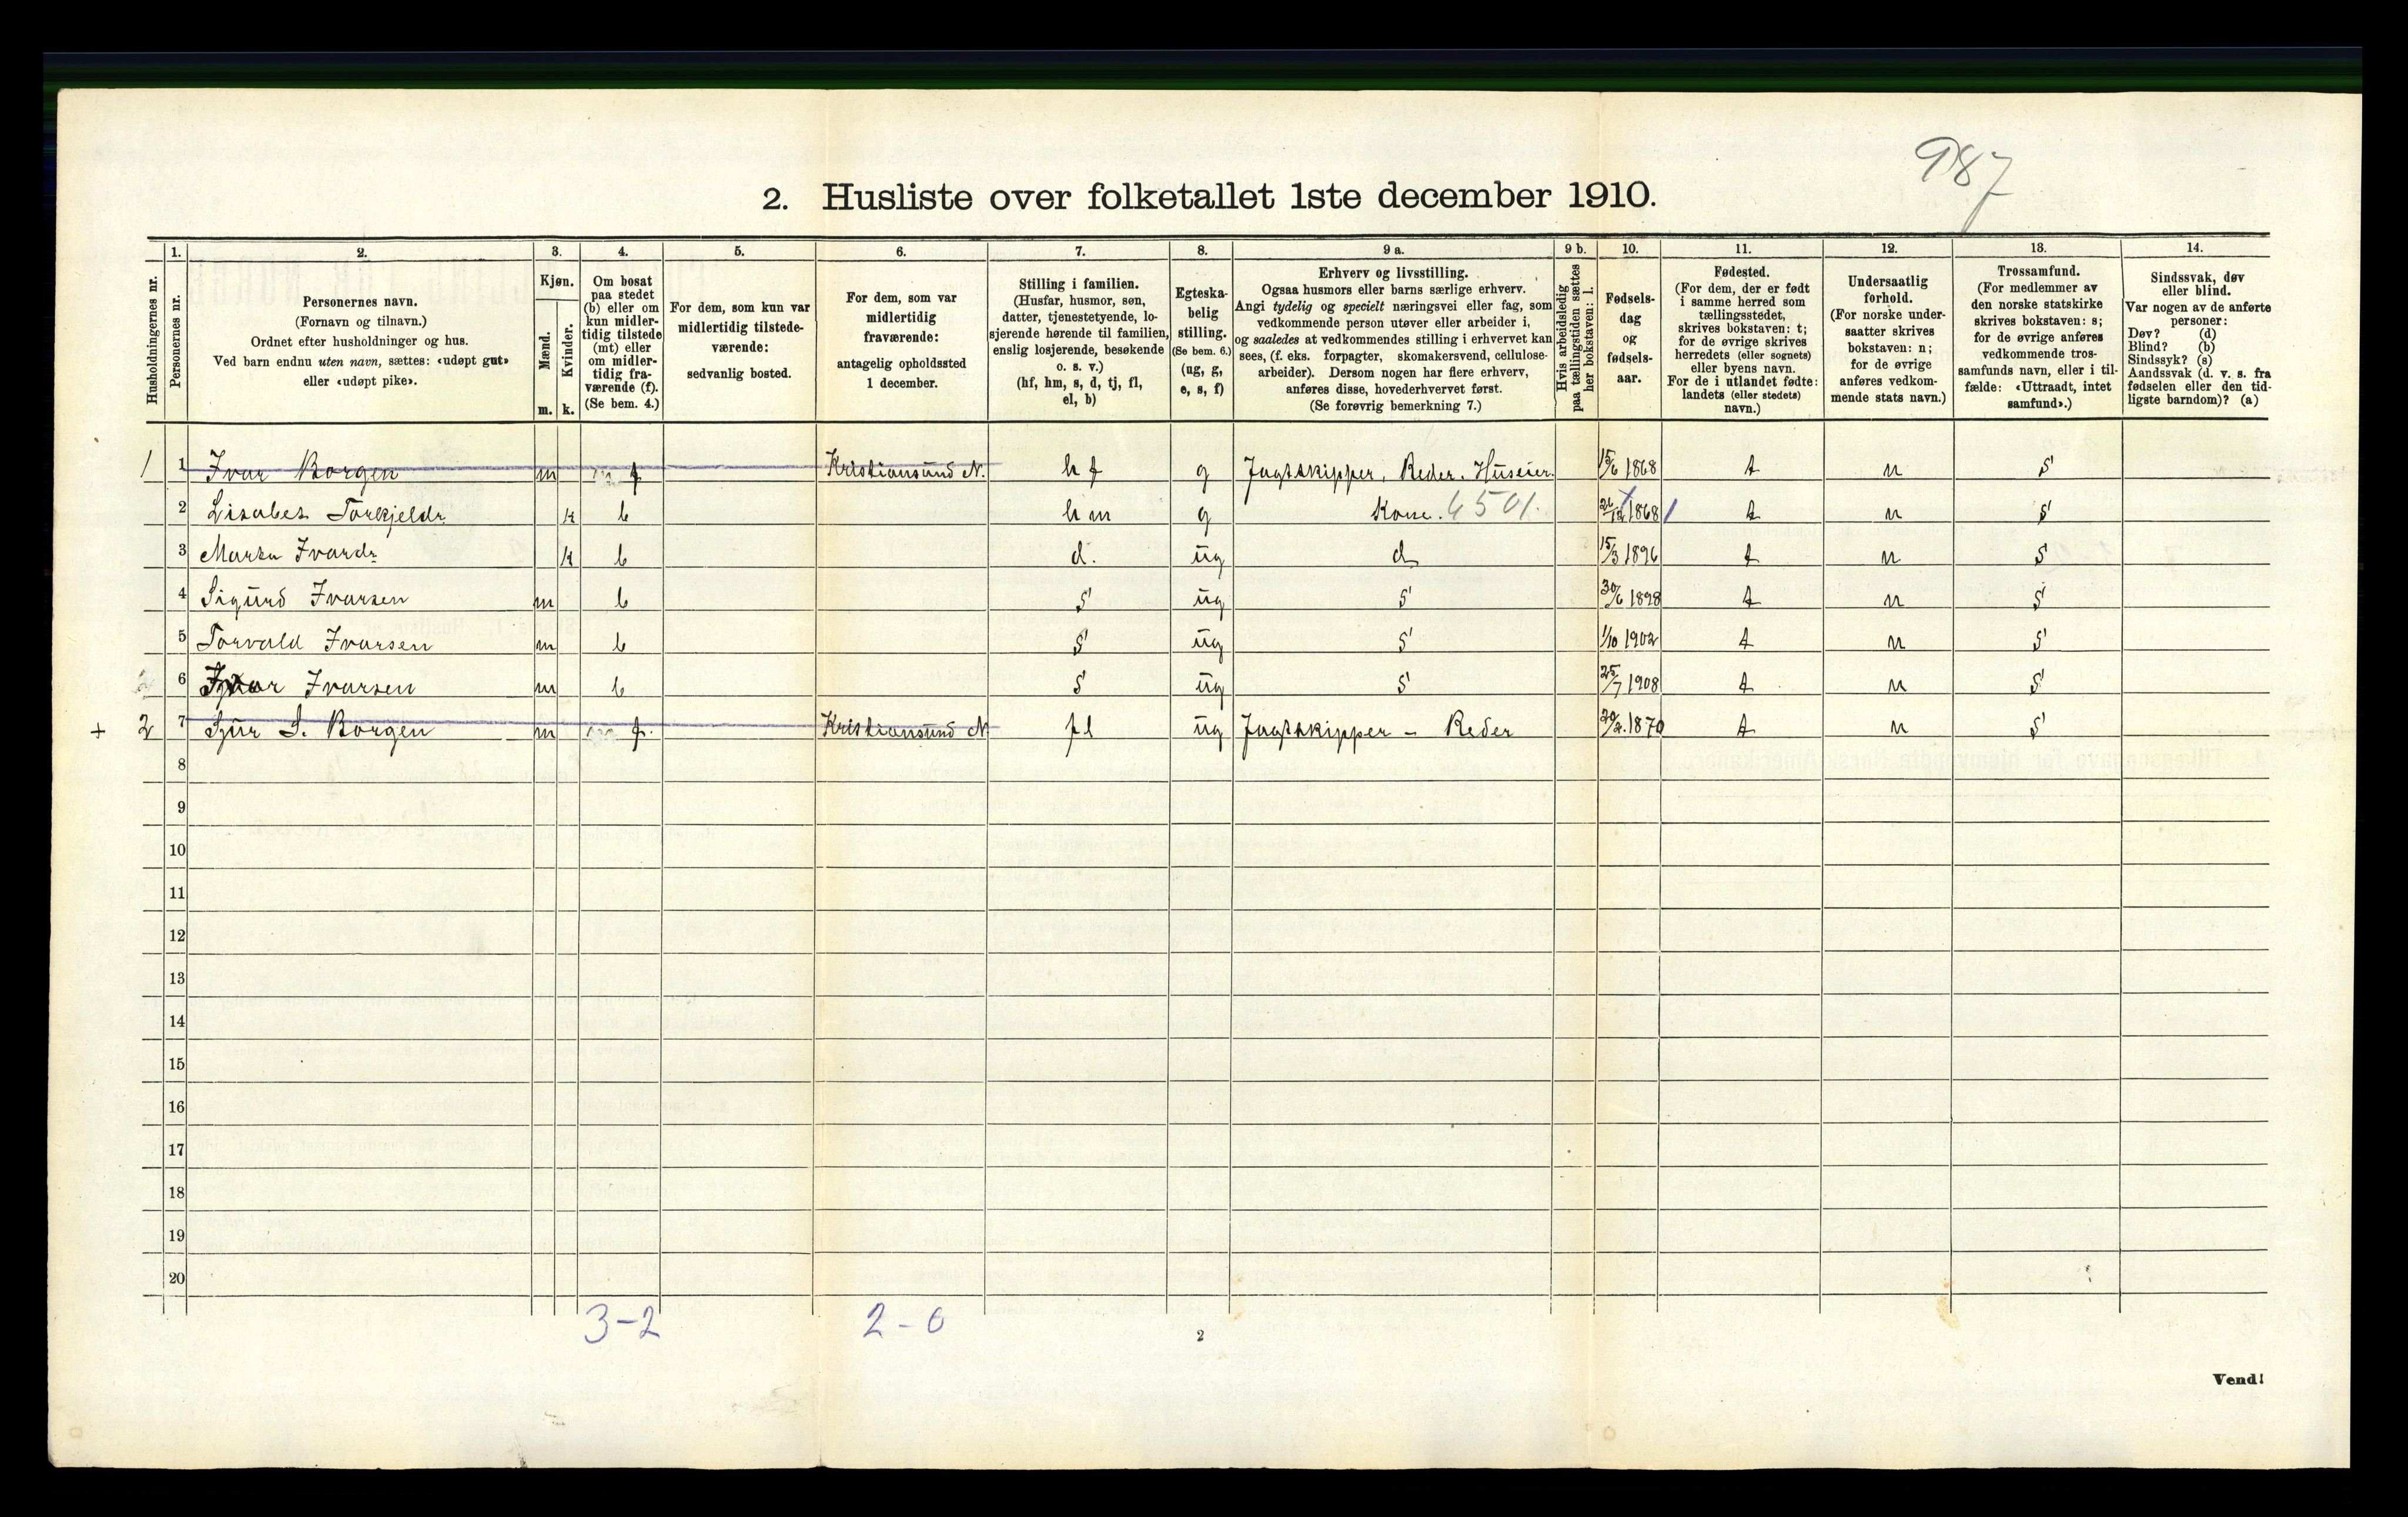 987
2. Husliste over folketallet 1ste december 1910.
Husholdningernes nr.
1.
Personernes nr.
2.
Personernes navn.
(Fornavn og tilnavn.)
Ordnet efter husholdninger og hus.
Ved barn endnu uten navn, sættes: «udøpt gut»
eller «udøpt pike».
3.
Kjøn.
Mænd.
m.
Kvinder.
k.
4.
Om bosat
paa stedet
(b) eller om
kun midler-
tidig tilstede
(mt) eller
om midler-
tidig fra-
værende (f).
(Se bem. 4.)
5.
For dem, som kun var
midlertidig tilstede-
værende:
sedvanlig bosted.
6.
For dem, som var
midlertidig
fraværende:
antagelig opholdssted
1 december.
7.
Stilling i familien.
(Husfar, husmor, søn,
datter, tjenestetyende, lo-
sjerende hørende til familien,
enslig losjerende, besøkende
o. s. v.)
(hf, hm, s, d, tj, fl,
el, b)
8.
Egteska-
belig
stilling.
(Se bem. 6.)
(ug, g,
e, s, f)
9 a.
Erhverv og livsstilling.
Ogsaa husmors eller barns særlige erhverv.
Angi tydelig og specielt næringsvei eller fag, som
vedkommende person utøver eller arbeider i,
og saaledes at vedkommendes stilling i erhvervet kan
sees, (f. eks. forpagter, skomakersvend, cellulose-
arbeider). Dersom nogen har flere erhverv,
anføres disse, hovederhvervet først.
(Se forøvrig bemerkning 7.)
9 b.
Hvis arbeidsledig
paa tællingstiden sættes
her bokstaven: l.
10.
Fødsels-
dag
og
fødsels-
aar.
11.
Fødested.
(For dem, der er født
i samme herred som
tællingsstedet,
skrives bokstaven: t;
for de øvrige skrives
herredets (eller sognets)
eller byens navn.
For de i utlandet fødte:
landets (eller stedets)
navn.)
12.
Undersaatlig
forhold.
(For norske under-
saatter skrives
bokstaven: n;
for de øvrige
anføres vedkom-
mende stats navn.)
13.
Trossamfund.
(For medlemmer av
den norske statskirke
skrives bokstaven: s;
for de øvrige anføres
vedkommende tros-
samfunds navn, eller i til-
fælde: «Uttraadt, intet
samfund».)
14.
Sindssvak, døv
eller blind.
Var nogen av de anførte
personer:
Døv? (d)
Blind? (b)
Sindssyk? (s)
Aandssvak (d. v. s. fra
fødselen eller den tid-
ligste barndom)? (a)
1 1 Ivar Borgen m f Kristiansund N. hf g Jagtskipper, Reder. Huseier. 15/6 1868 t n s
2 Lisabet Torkjeldr k b hm g Kone. 4501. 26/12 1868 t n s
3 Marta Ivardr k b d. ug d 15/3 1896 t n s
4 Sigurd Ivarsen m b s ug s 30/6 1898 t n s
5 Torvald Ivarsen m b s ug s 1/10 1902 t n s
6 Ivarsen m b s ug s 25/7 1908 t n s
+ 2 7 Sjur S. Borgen m f. Kristiansund N fl ug Jagtskipper - Reder 20/2.1870 t n s
8
9
10
11
12
13
14
15
16
17
18
19
20
3-2 2-0
2
Vend!